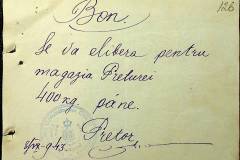 126
Bon.
Se va elibera pentru
magazia Preturei
400 kg. pâne.
Pretor,